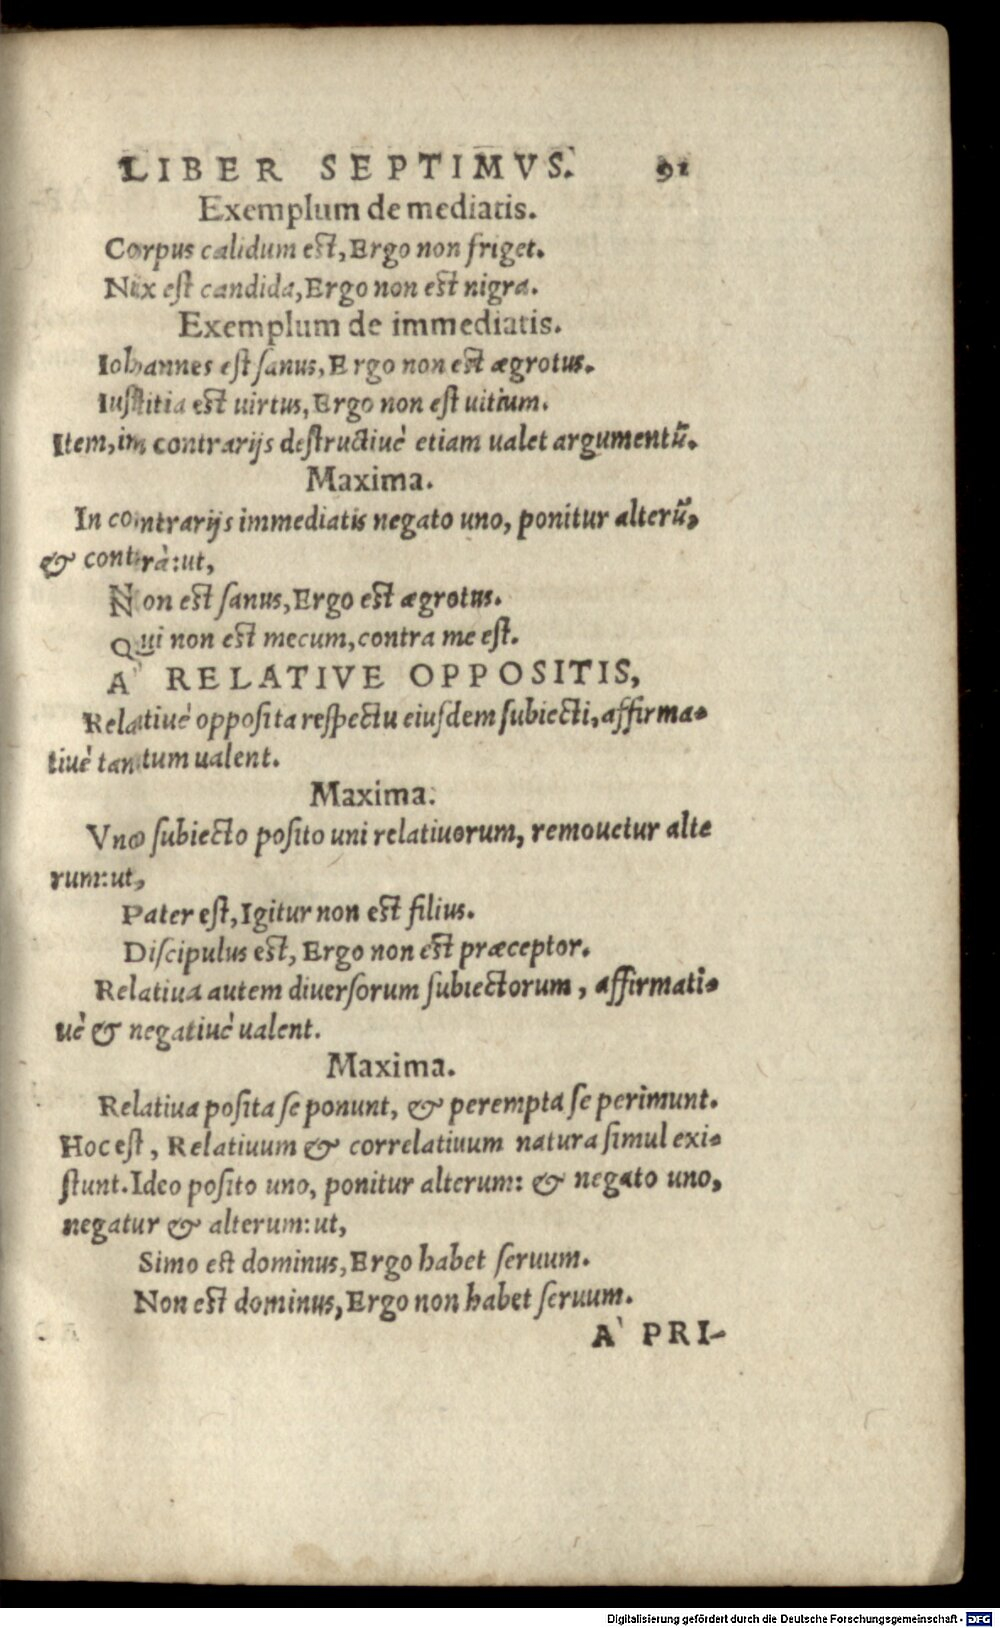 LIBER SEPTIMVS. 91
Exemplum de mediatis.
Corpus calidum est, Ergo non friget.
Nix est candida, Ergo non est nigra.
Exemplum de immediatis.
Iohannes est sanus, Ergo non est ægrotus.
Iustitia est uirtus, Ergo non est uitium.
Item, in contrarijs destructiuè etiam ualet argumentũ.
Maxima.
In contrarijs immediatis negato uno, ponitur alterũ,
& contrà: ut,
Non est sanus, Ergo est ægrotus.
Qui non est mecum, contra me est.
A` RELATIVE OPPOSITIS,
Relatiuè opposita respectu eiusdem subiecti, affirma-
tiuè tantum ualent.
Maxima.
Vno subiecto posito uni relatiuorum, remouetur alte
rum: ut,
Pater est, Igitur non est filius.
Discipulus est, Ergo non est præceptor.
Relatiua autem diuersorum subiectorum, affirmati-
uè & negatiuè ualent.
Maxima.
Relatiua posita se ponunt, & perempta se perimunt.
Hoc est, Relatiuum & correlatiuum natura simul exi-
stunt. Ideo posito uno, ponitur alterum: & negato uno,
negatur & alterum: ut,
Simo est dominus, Ergo habet seruum.
Non est dominus, Ergo non habet seruum.
A` PRI-
Digitalisierung gefördert durch die Deutsche Forschungsgemeinschaft - DFG